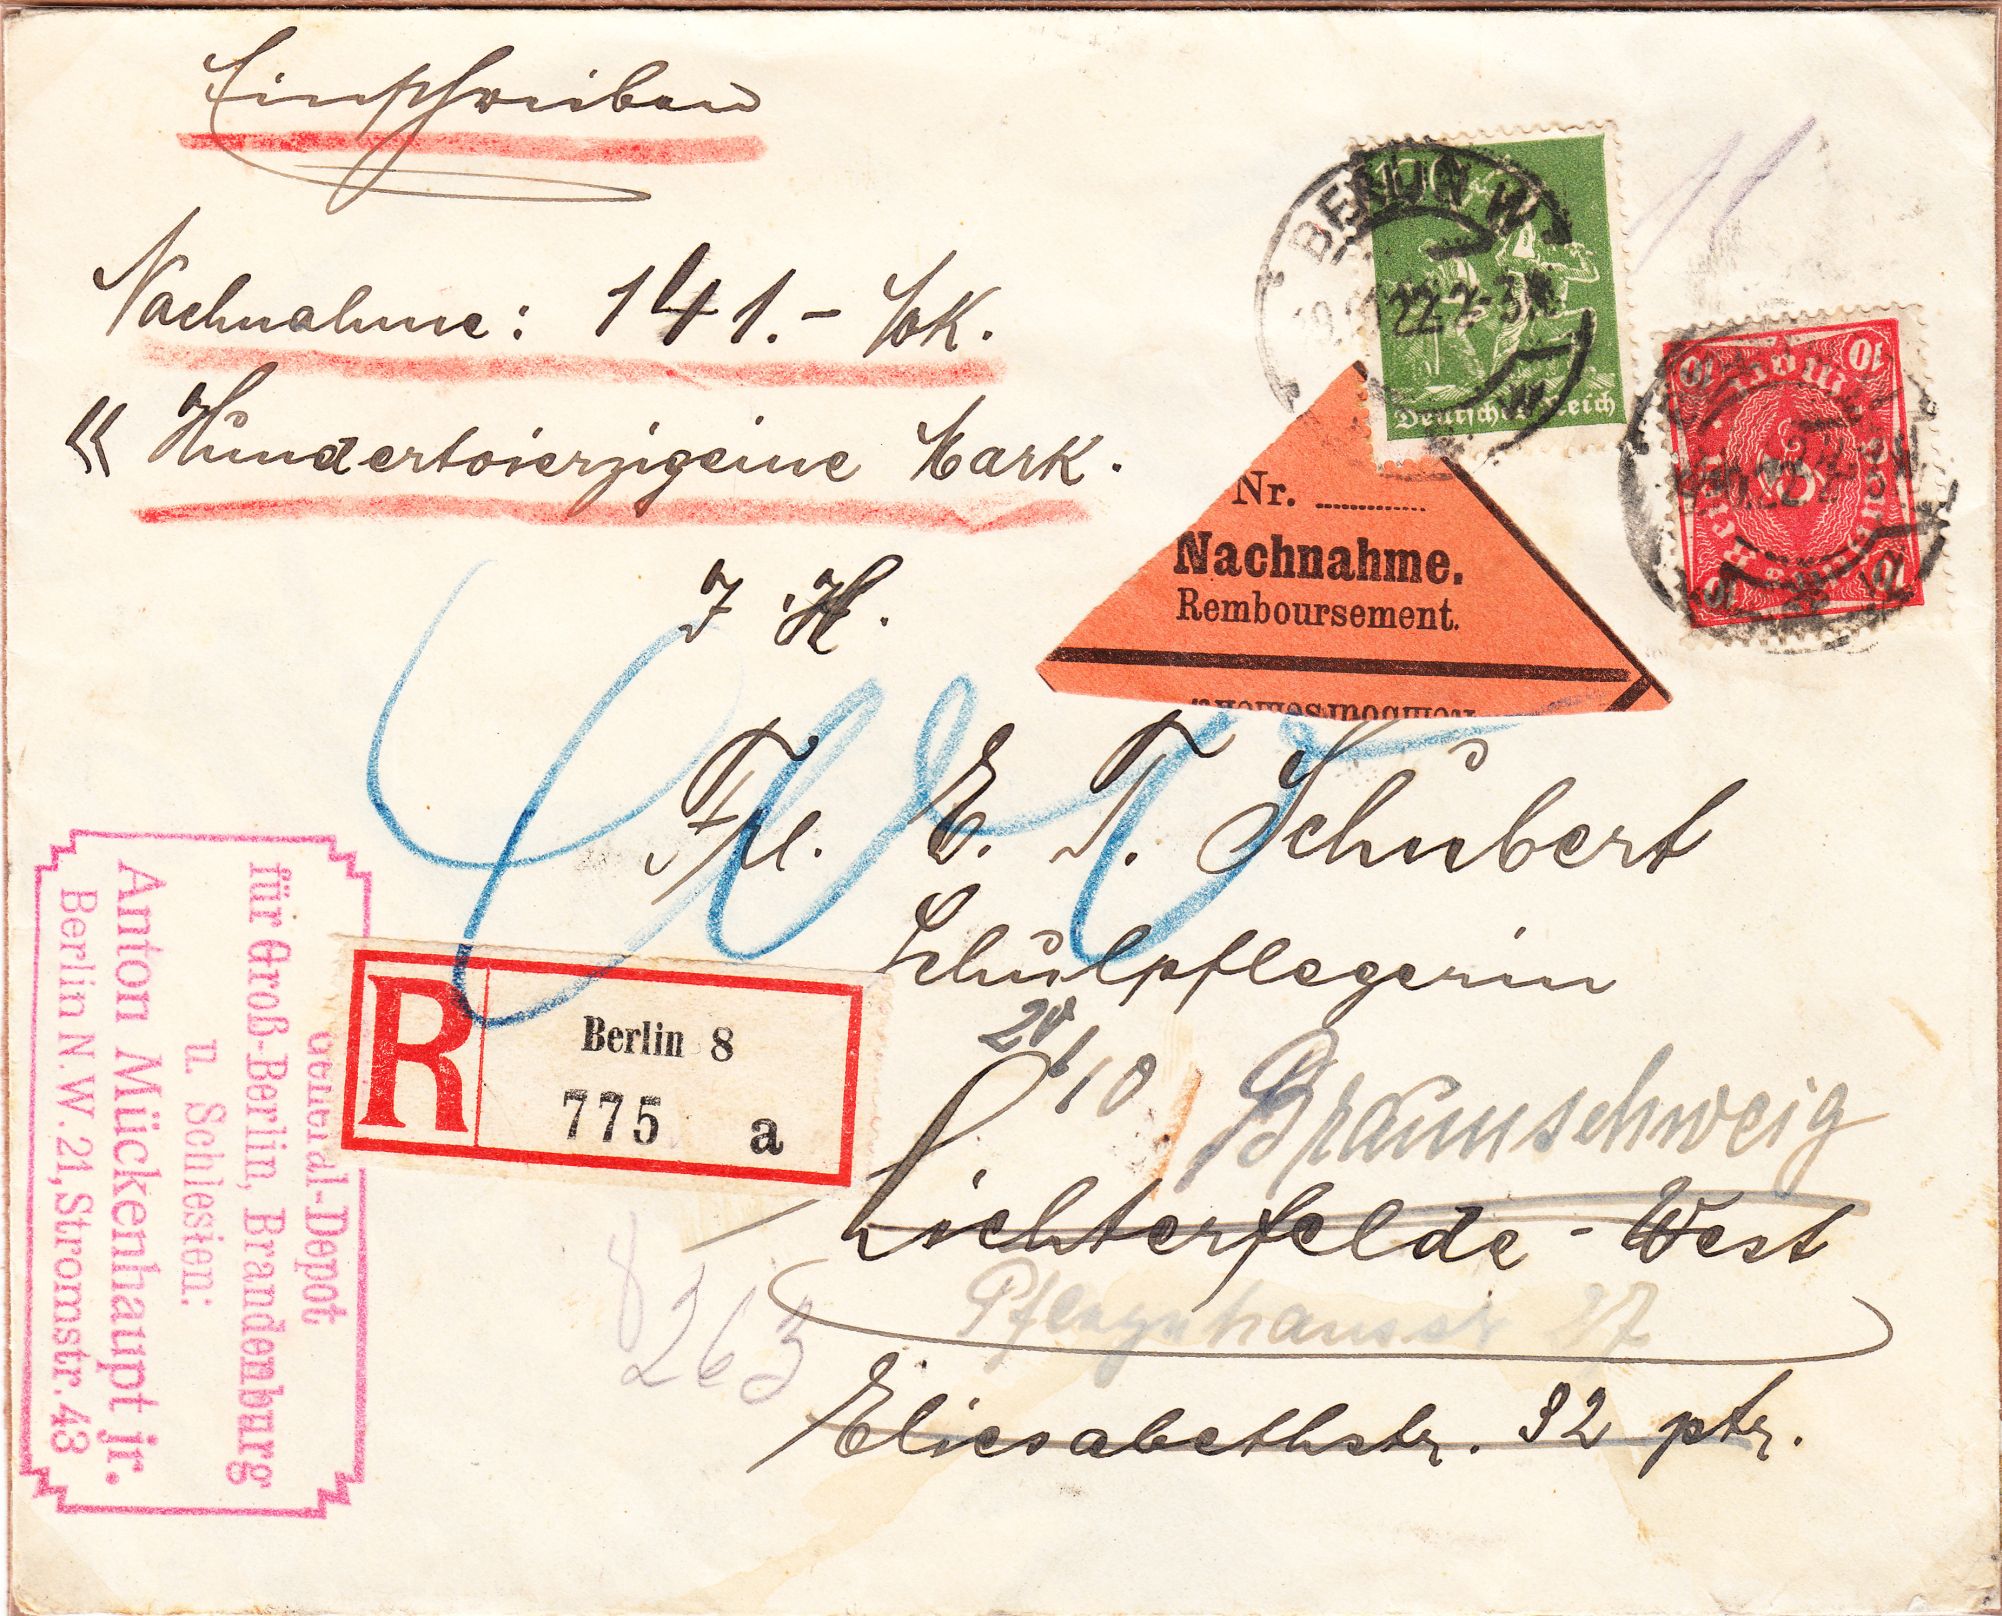 Einschreiben
Nachnahme: 141.- Mk.
" Hundertvierzigeine Mark.
J. H.
BERLIN W
22.2-3N
150
Deutsches Reich
10
10
10
10
Nr.
Nachnahme.
Remboursement.
Frl. E. T. Schubert
Schulpflegerin
20/10
Braunschweig
Lichterfelde - West
27
Eliesabethstr. 32 ptr.
263
R
Berlin 8
775 a
General-Depot
für Groß-Berlin, Brandenburg
u. Schlesien:
Anton Mückenhaupt jr.
Berlin N.W. 21, Stromstr. 43